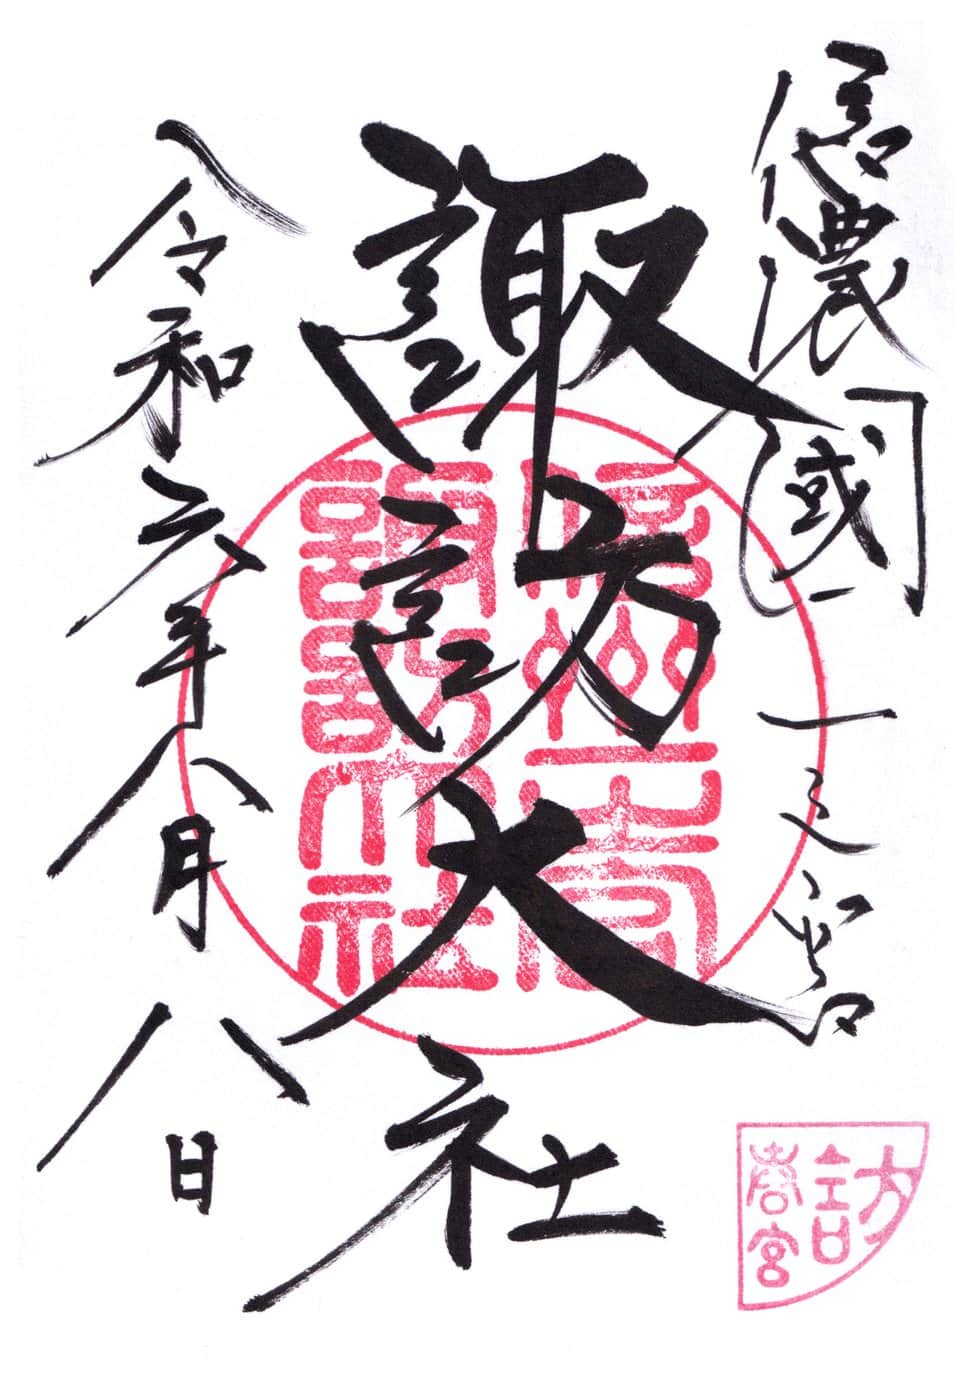 信濃國一之宮
諏訪大社
令和六年八月八日
諏訪大社
訪
春宮